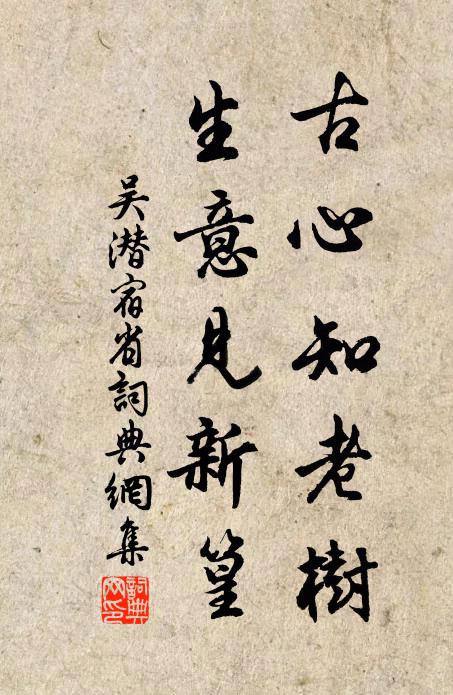 古心知老樹
生意見新篁
吴潜宿省詞典網集
詞典網印